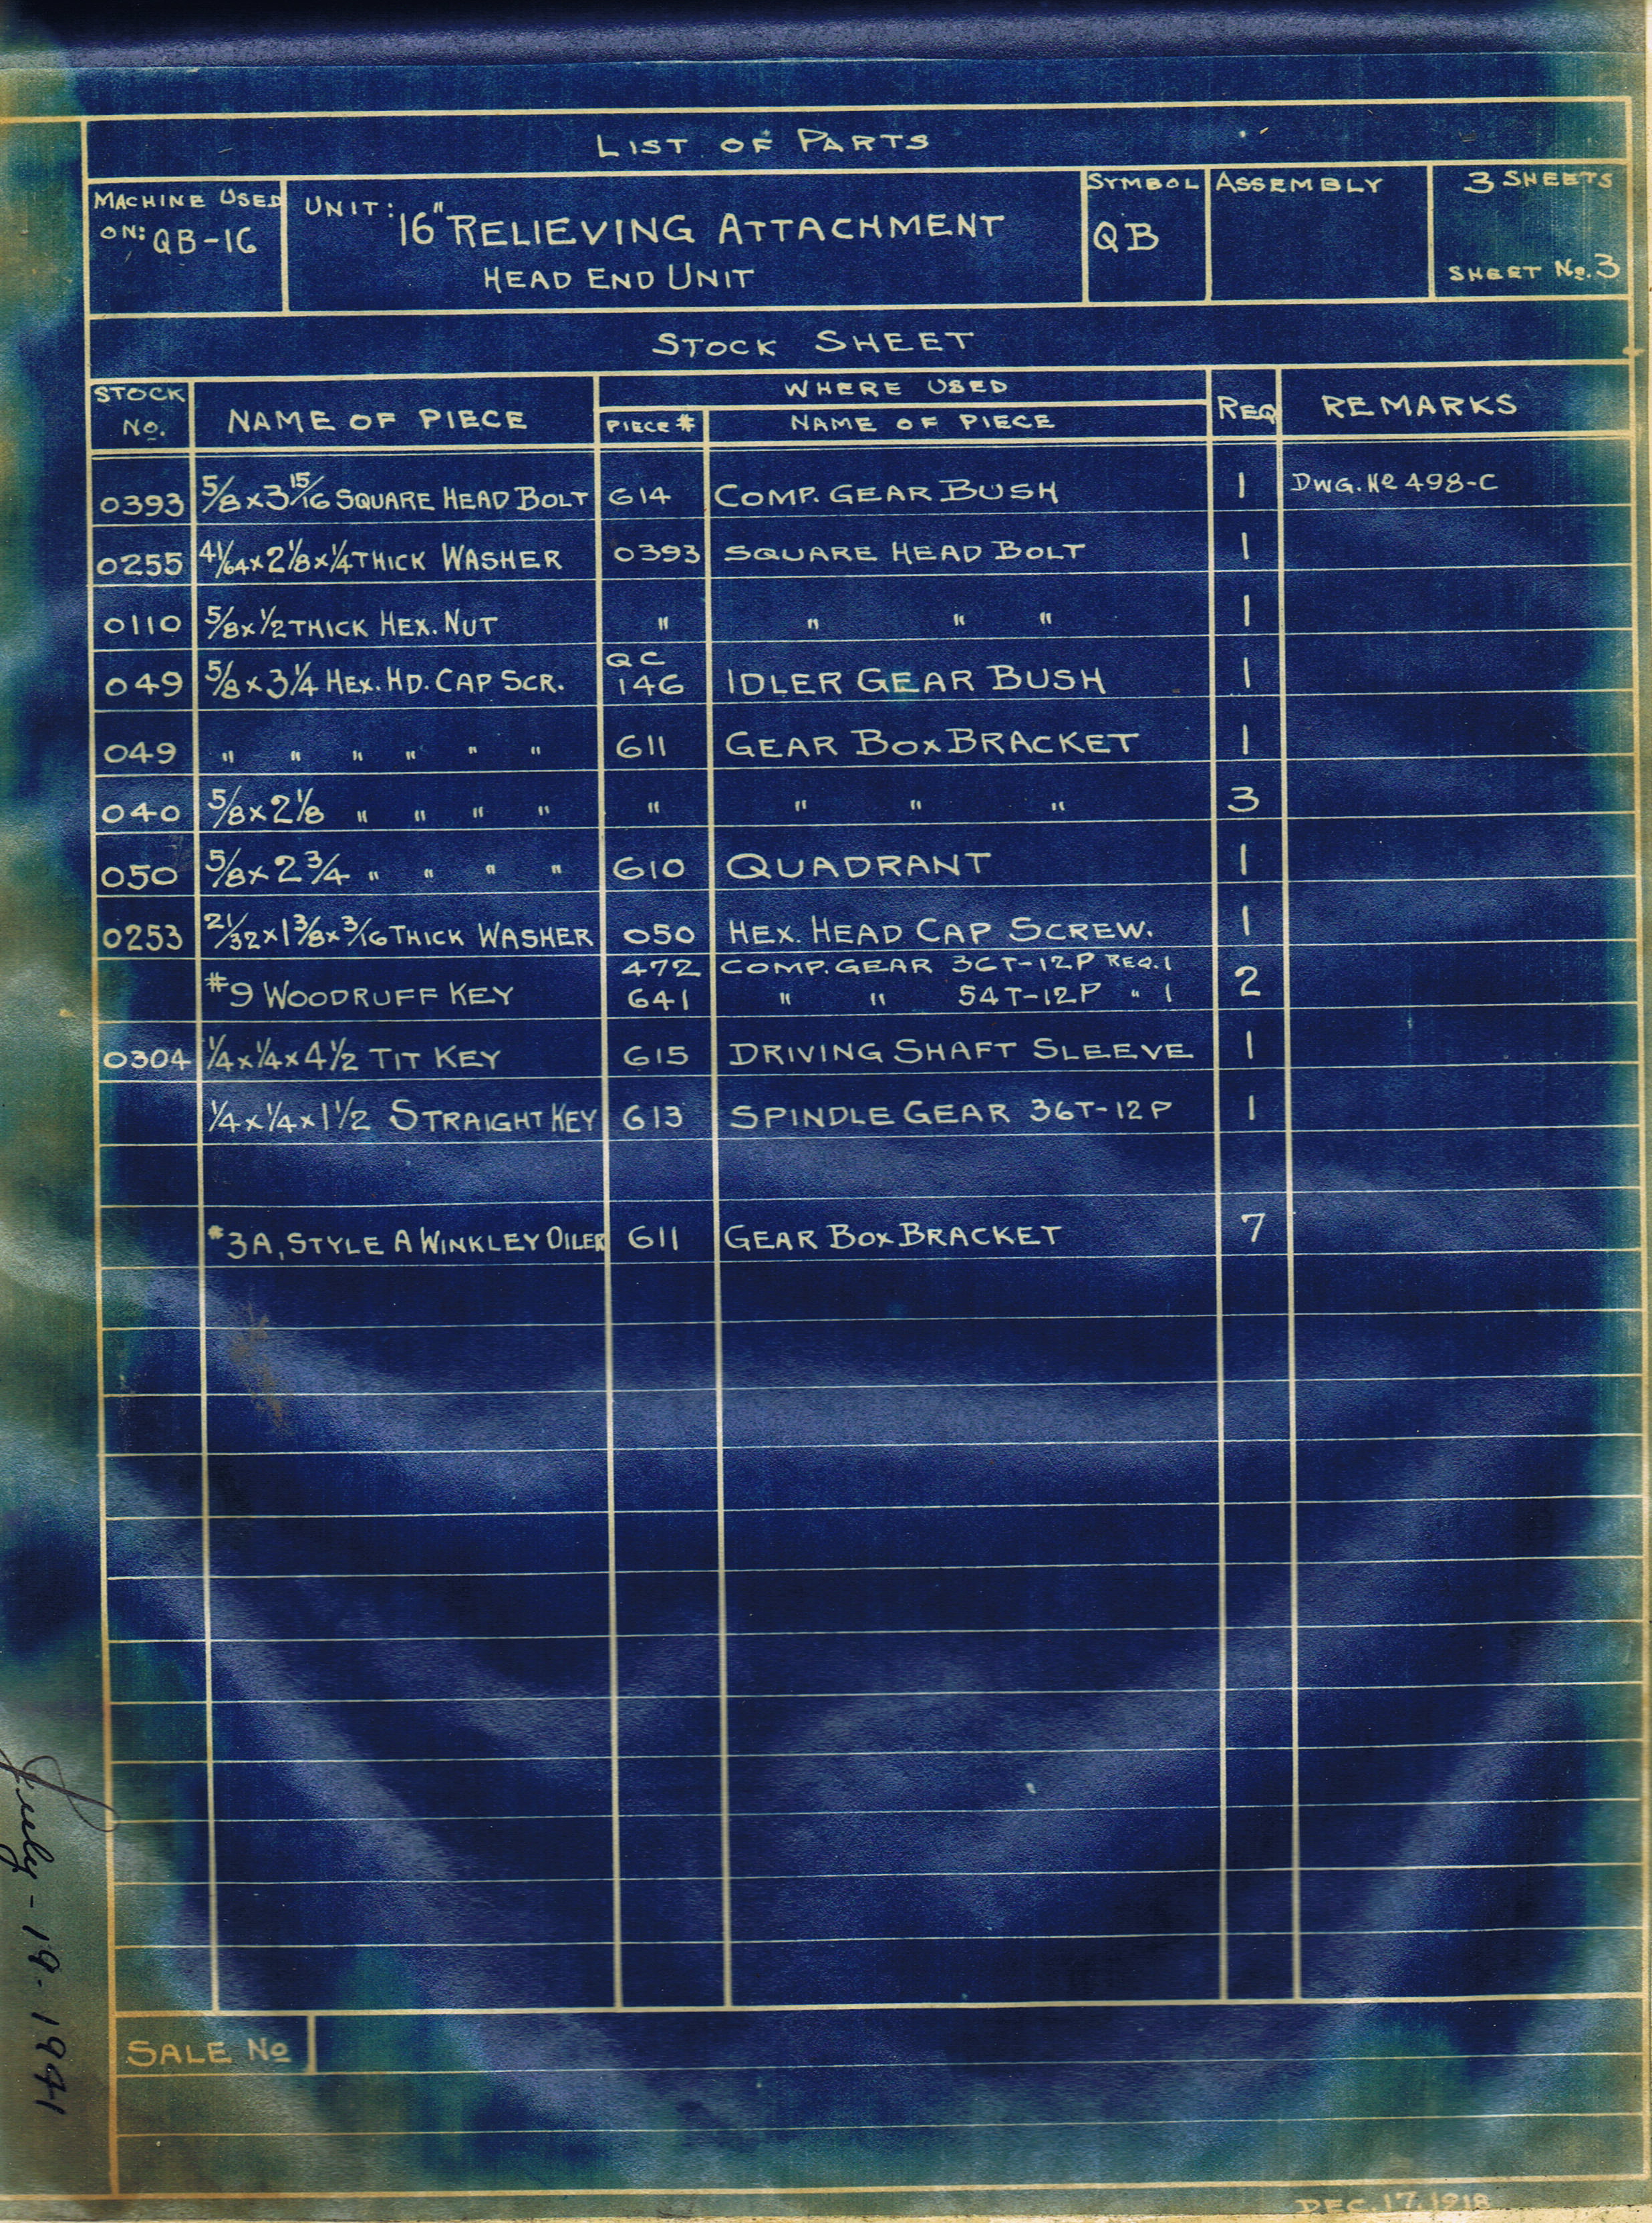 LIST OF PARTS
MACHINE USED ON: QB-16
UNIT: 16" RELIEVING ATTACHMENT
HEAD END UNIT
SYMBOL QB
ASSEMBLY
3 SHEETS
SHEET No. 3
STOCK SHEET
STOCK No. NAME OF PIECE WHERE USED REQ REMARKS
PIECE # NAME OF PIECE
0393 5/8 x 3 15/16 SQUARE HEAD BOLT 614 COMP. GEAR BUSH 1 DWG. No 498-C
0255 41/64 x 2 1/8 x 1/4 THICK WASHER 0393 SQUARE HEAD BOLT 1
0110 5/8 x 1/2 THICK HEX. NUT " " " " 1
049 5/8 x 3 1/4 HEX. HD. CAP SCR. QC 146 IDLER GEAR BUSH 1
049 " " " " " " 611 GEAR BOX BRACKET 1
040 5/8 x 2 1/8 " " " " " " " " 3
050 5/8 x 2 3/4 " " " " 610 QUADRANT 1
0253 21/32 x 1 3/8 x 3/16 THICK WASHER 050 HEX. HEAD CAP SCREW. 1
#9 WOODRUFF KEY 472 COMP. GEAR 36T-12P REQ. 1 2
641 " " 54T-12P " 1
0304 1/4 x 1/4 x 4 1/2 TIT KEY 615 DRIVING SHAFT SLEEVE 1
1/4 x 1/4 x 1 1/2 STRAIGHT KEY 613 SPINDLE GEAR 36T-12P 1
#3A, STYLE A WINKLEY OILER 611 GEAR BOX BRACKET 7
SALE No
DEC. 17. 1918
July - 19 - 1941